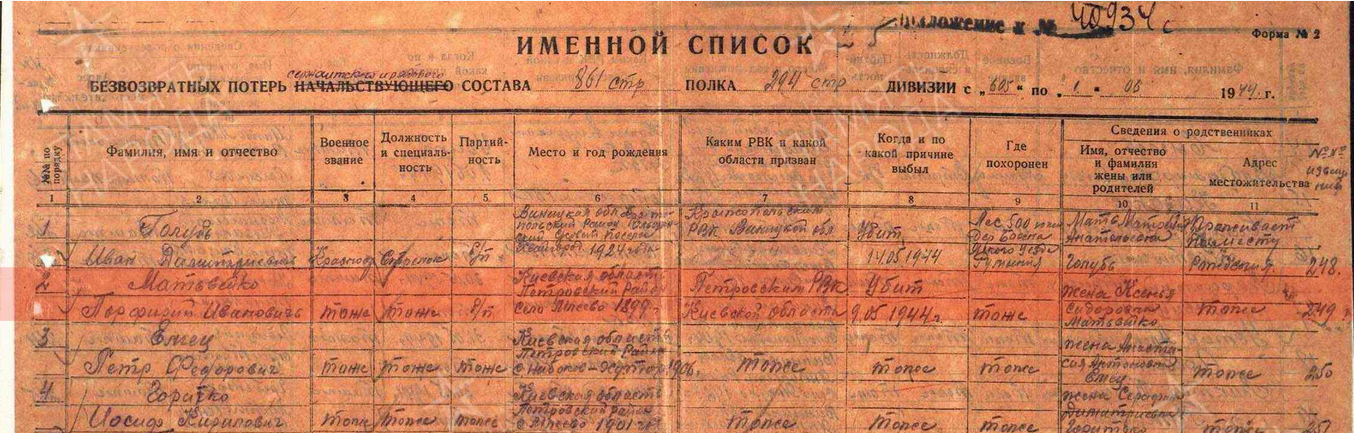 Приложение к № 40934 с
Форма № 2
ИМЕННОЙ СПИСОК
сержантского и рядового
БЕЗВОЗВРАТНЫХ ПОТЕРЬ НАЧАЛЬСТВУЮЩЕГО СОСТАВА 861 стр ПОЛКА 294 стр ДИВИЗИИ с „ 605 “ по „ 1 “ 06 1944 г.
№№ по порядку
Фамилия, имя и отчество
Военное звание
Должность и специальность
Партийность
Место и год рождения
Каким РВК и какой области призван
Когда и по какой причине выбыл
Где похоронен
Сведения о родственниках
Имя, отчество и фамилия жены или родителей
Адрес местожительства
1 2 3 4 5 6 7 8 9 10 11
1
Голубь
Иван Дмитриевич
Красноар Стрелок б/п
1924
РВК Виницкой обл
Убит
14 05 1944
Лес 500 мтр
Румыния
Мать
Голубь
Проживает
По месту
Рождения
248.
2
Матвейко
Порфирий Иванович
тоже тоже б/п
Киевская область
Петровский Район
село 1899 г.
Петровским РВК
Киевской области
Убит
9.05 1944 г.
тоже
жена Ксенья
Сидоровна
Матвейко
тоже
249
3
Емец
Петр Федорович
тоже тоже тоже
Киевская область
Петровский Район
1906,
тоже
тоже
тоже
жена Анаста-
сия Антоновна
Емец
тоже
250
4
Горитко
Иосиф Кирилович
тоже тоже тоже
Киевская область
Петровский район
1901 г.
тоже
тоже
тоже
жена
Горитко
тоже
251